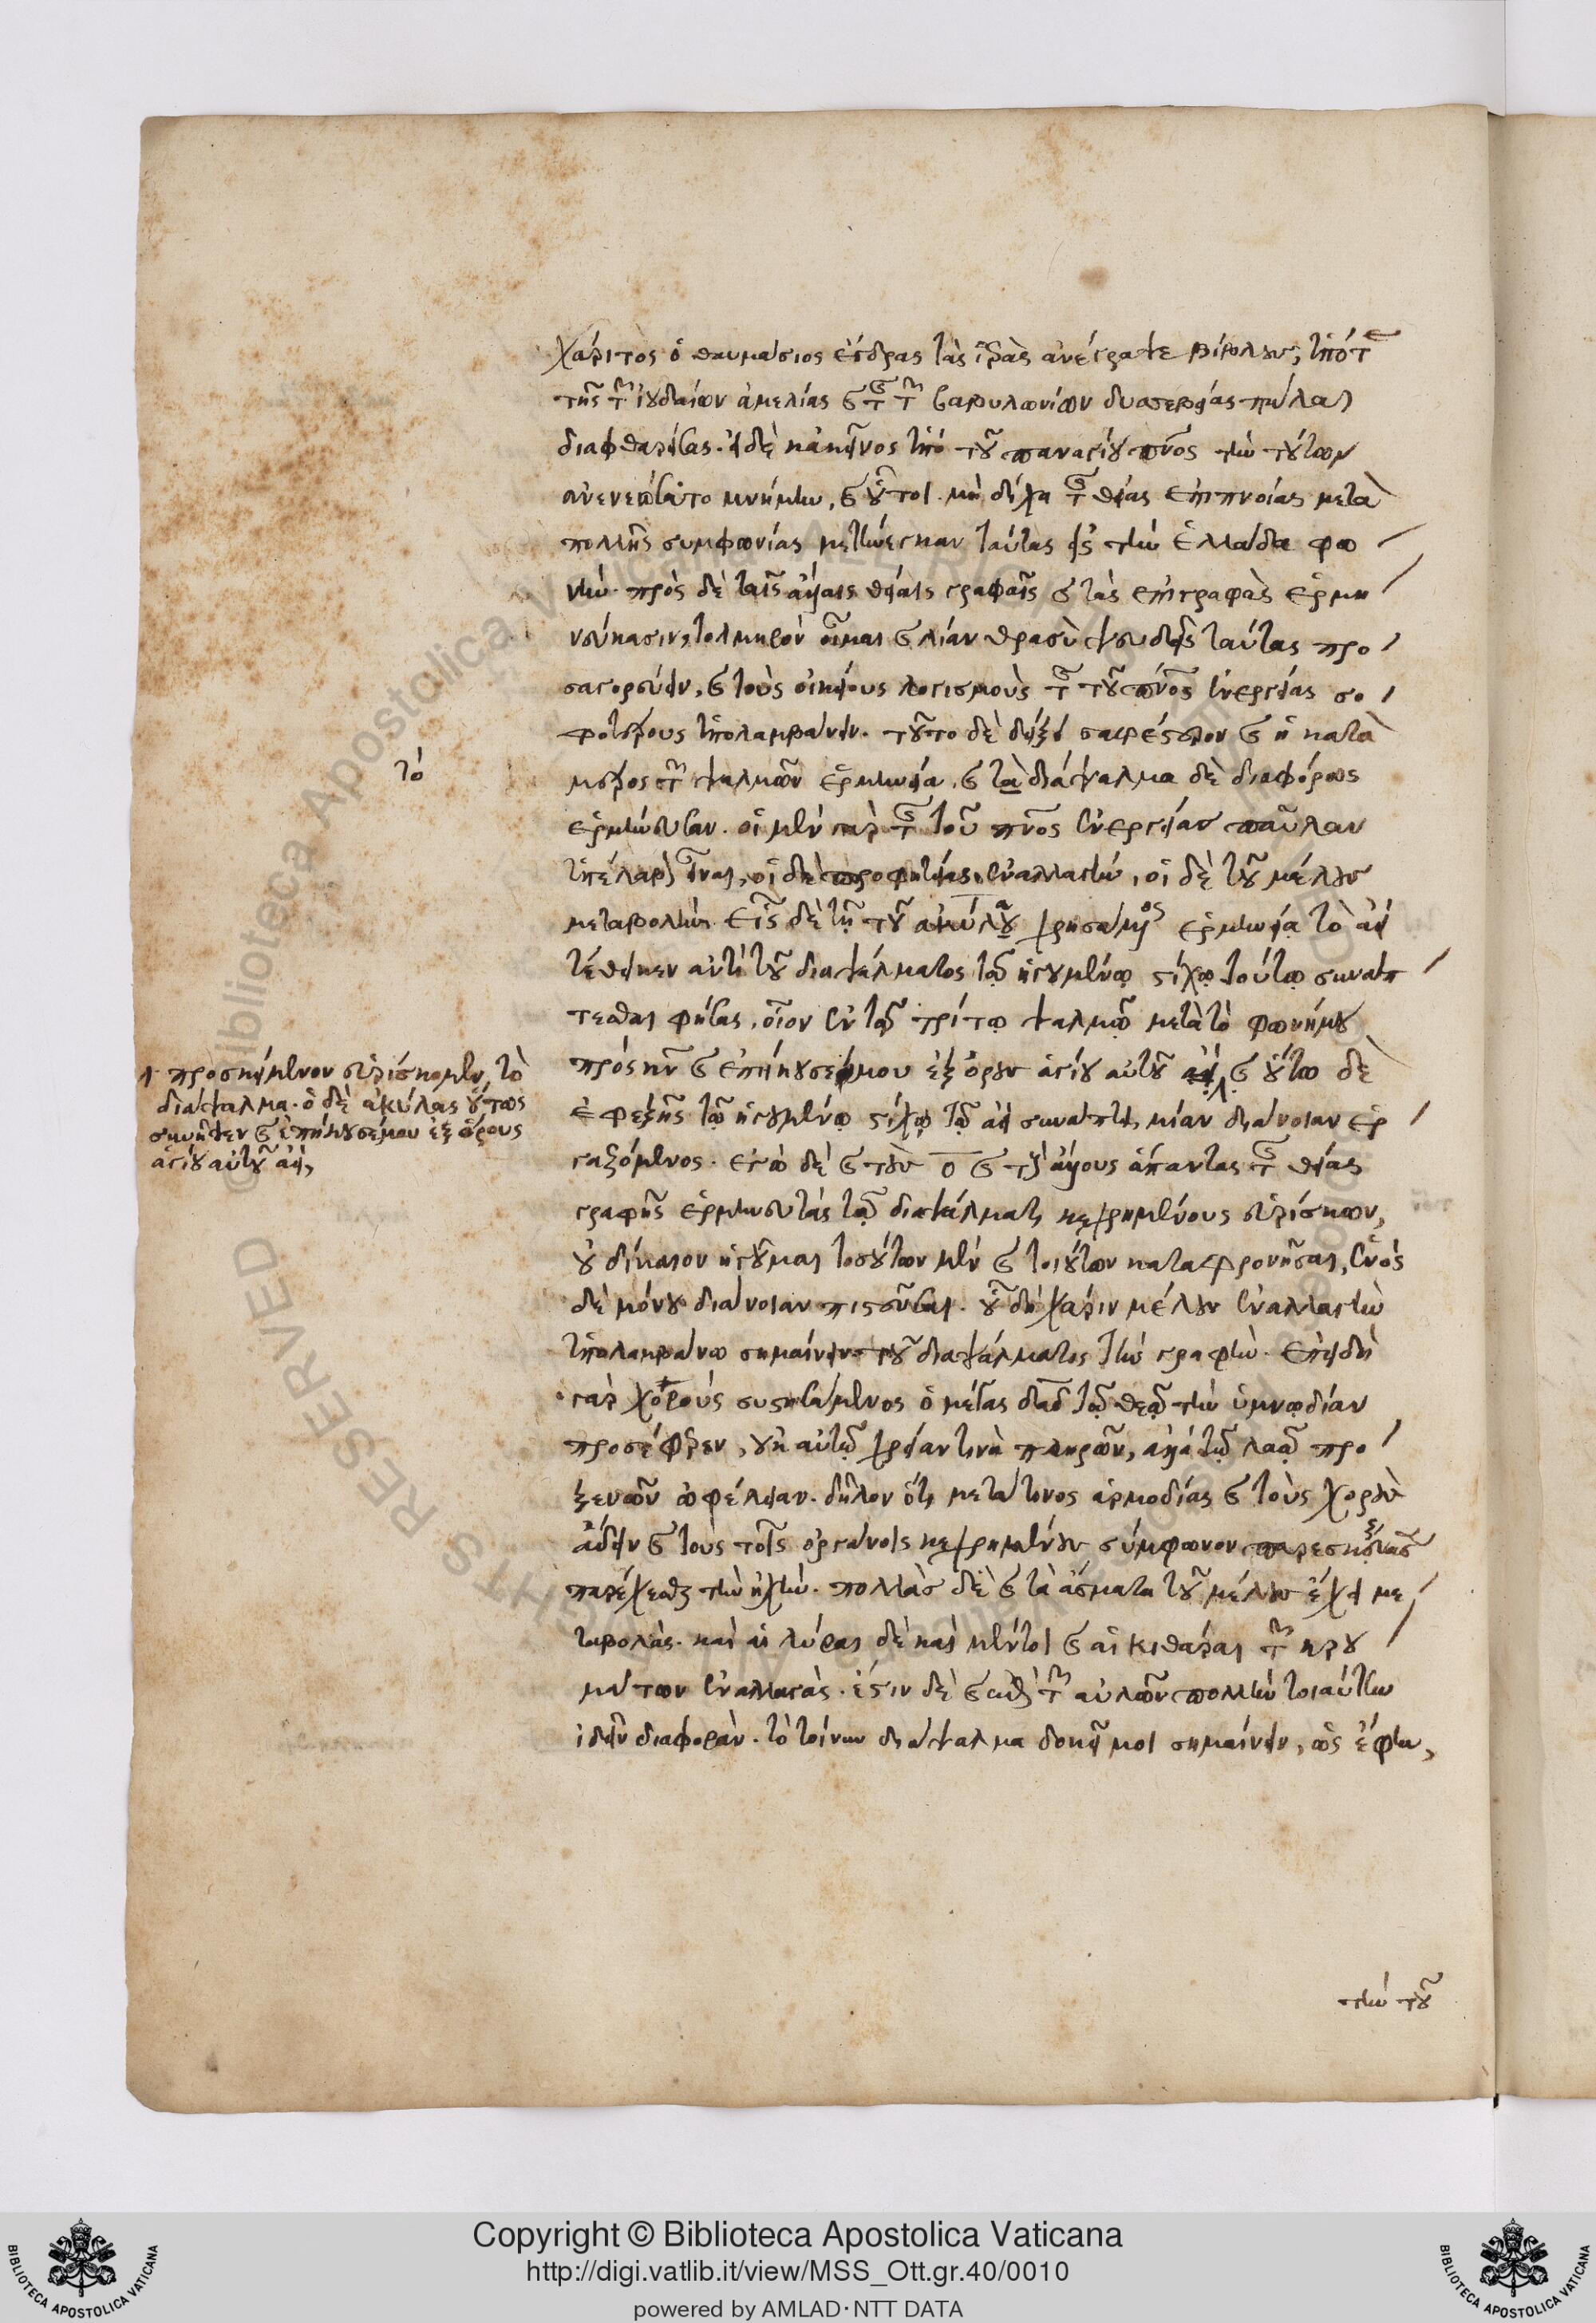 χάριτος ὁ θαυμάσιος ἔσδρας τὰς ἱερὰς ἀνέγραψε βίβλους, ὑπό τε
τῆς τῶν ἰουδαίων ἀμελίας καὶ τῆς τῶν βαβυλωνίων δυσσεβείας πάλαι
διαφθαρείσας. εἰ δὲ κἀκεῖνος ὑπὸ τοῦ παναγίου πνς τὴν τούτων
ἀνενεώσατο μνήμην, καὶ οὗτοι μὴ δίχα τῆς θείας ἐπιπνοίας μετὰ
πολλῆς συμφωνίας μετήνεγκαν ταύτας εἰς τὴν ἑλλάδα φω
νήν. πρὸς δὲ ταῖς ἄλλαις θείαις γραφαῖς καὶ τὰς ἐπιγραφὰς ἑρμη
νεύκασιν, τολμηρὸν οἶμαι καὶ λίαν θρασὺ ψευδεῖς ταύτας προ
σαγορεύειν, καὶ τοὺς οἰκείους λογισμοὺς τῆς τοῦ πνς ἐνεργείας σο
φωτέρους ὑπολαμβάνειν. τοῦτο δὲ δείξει σαφέστερον καὶ ἡ κατὰ
μέρος τῶν ψαλμῶν ἑρμηνεία. καὶ τὰ διάψαλμα δὲ διαφόρως
τό
ἑρμήνευσαν. οἱ μὲν γὰρ τῆς τοῦ πνς ἐνεργείας παῦλαν
ὑπέλαβον εἶναι, οἱ δὲ προφητείας ἐναλλαγήν, οἱ δὲ τοῦ μέλους
μεταβολήν. εἷς δὲ τῇ τοῦ ἀκύλου χρησάμενος ἑρμηνεία τὸ ἀεὶ
τέθεικεν ἀντὶ τοῦ διαψάλματος τῷ ἡγουμένῳ στίχῳ τούτῳ συνάπ
τεσθαι φήσας, οἷον ἐν τῷ τρίτῳ ψαλμῷ μετὰ τὸ φωνῇ μου
πρὸς κν καὶ ἐπήκουσέ μου ἐξ ὄρους ἁγίου αὐτοῦ ἀεί, καὶ οὕτω δὲ
προσκείμενον εὑρίσκομεν τὸ
διάψαλμα. ὁ δὲ ἀκύλας οὕτως
συνῆψεν καὶ ἐπήκουσέ μου ἐξ ὄρους
ἁγίου αὐτοῦ ἀεί,
ἐφεξῆς τῷ ἡγουμένῳ στίχῳ τῷ ἀεὶ συνάπτει, μίαν διάνοιαν ἐρ
γαζόμενος. ἐγὼ δὲ καὶ τοὺς ο καὶ τοὺς ἄλλους ἅπαντας τῆς θείας
γραφῆς ἑρμηνευτὰς τῷ διαψάλματι κεχρημένους εὑρίσκων,
οὐ δίκαιον ἡγοῦμαι τοσούτων μὲν καὶ τοιούτων καταφρονῆσαι, ἑνὸς
δὲ μόνου διάνοιαν πιστεῦσαι. οὗ δὴ χάριν μέλους ἐναλλαγὴν
ὑπολαμβάνω σημαίνειν τοῦ διαψάλματος τὴν γραφήν. ἐπειδὴ
γὰρ χοροὺς συστησάμενος ὁ μέγας δαδ τῷ θεῷ τὴν ὑμνῳδίαν
προσέφερεν, οὐκ αὐτῷ χρείαν τινὰ πληρῶν, ἀλλὰ τῷ λαῷ προ
ξενῶν ὠφέλειαν. δῆλον ὅτι μετά τινος ἁρμοδίας καὶ τοὺς χοροὺς
ᾄδειν καὶ τοὺς τοῖς ὀργάνοις κεχρημένους σύμφωνον
παρέχεσθαι τὴν ἠχήν. πολλὰς δὲ καὶ τὰ ᾄσματα τοῦ μέλους ἔχει με
ταβολάς. καὶ αἱ λύραι δὲ καὶ μέντοι καὶ αἱ κιθάραι τῶν κρου
μάτων ἐναλλαγάς. ἔστιν δὲ καὶ ἐπὶ τῶν αὐλῶν πολλὴν τοιαύτην
ἰδεῖν διαφοράν. τὸ τοίνυν διάψαλμα δοκεῖ μοι σημαίνειν, ὡς ἔφην,
τὴν τοῦ
Copyright © Biblioteca Apostolica Vaticana
http://digi.vatlib.it/view/MSS_Ott.gr.40/0010
powered by AMLAD·NTT DATA